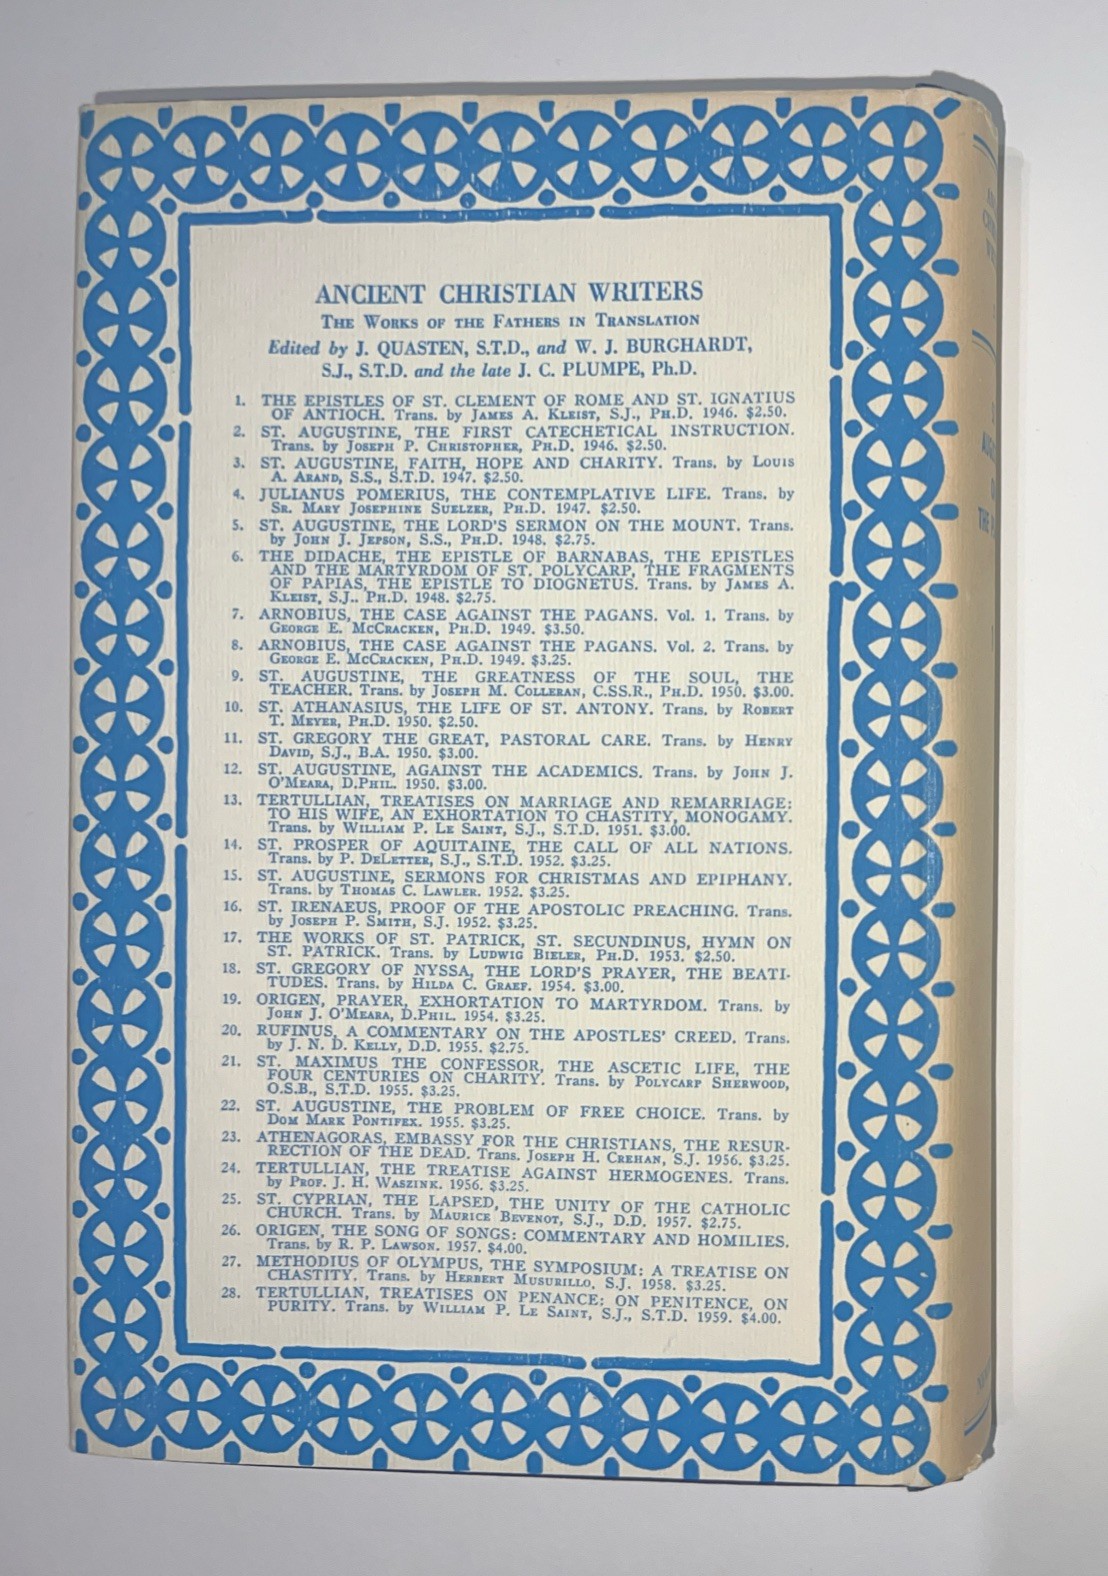 ANCIENT CHRISTIAN WRITERS
THE WORKS OF THE FATHERS IN TRANSLATION
Edited by J. QUASTEN, S.T.D., and W. J. BURGHARDT,
S.J., S.T.D. and the late J. C. PLUMPE, Ph.D.
1. THE EPISTLES OF ST. CLEMENT OF ROME AND ST. IGNATIUS
OF ANTIOCH. Trans. by JAMES A. KLEIST, S.J., PH.D. 1946. $2.50.
2. ST. AUGUSTINE, THE FIRST CATECHETICAL INSTRUCTION.
Trans. by JOSEPH P. CHRISTOPHER, PH.D. 1946. $2.50.
3. ST. AUGUSTINE, FAITH, HOPE AND CHARITY. Trans. by LOUIS
A. ARAND, S.S., S.T.D. 1947. $2.50.
4. JULIANUS POMERIUS, THE CONTEMPLATIVE LIFE. Trans. by
SR. MARY JOSEPHINE SUELZER, PH.D. 1947. $2.50.
5. ST. AUGUSTINE, THE LORD'S SERMON ON THE MOUNT. Trans.
by JOHN J. JEPSON, S.S., PH.D. 1948. $2.75.
6. THE DIDACHE, THE EPISTLE OF BARNABAS, THE EPISTLES
AND THE MARTYRDOM OF ST. POLYCARP, THE FRAGMENTS
OF PAPIAS, THE EPISTLE TO DIOGNETUS. Trans. by JAMES A.
KLEIST, S.J.. PH.D. 1948. $2.75.
7. ARNOBIUS, THE CASE AGAINST THE PAGANS. Vol. 1. Trans. by
GEORGE E. MCCRACKEN, PH.D. 1949. $3.50.
8. ARNOBIUS, THE CASE AGAINST THE PAGANS. Vol. 2. Trans. by
GEORGE E. MCCRACKEN, PH.D. 1949. $3.25.
9. ST. AUGUSTINE, THE GREATNESS OF THE SOUL, THE
TEACHER. Trans. by JOSEPH M. COLLERAN, C.SS.R., PH.D. 1950. $3.00.
10. ST. ATHANASIUS, THE LIFE OF ST. ANTONY. Trans. by ROBERT
T. MEYER, PH.D. 1950. $2.50.
11. ST. GREGORY THE GREAT, PASTORAL CARE. Trans. by HENRY
DAVID, S.J., B.A. 1950. $3.00.
12. ST. AUGUSTINE, AGAINST THE ACADEMICS. Trans. by JOHN J.
O'MEARA, D.PHIL. 1950. $3.00.
13. TERTULLIAN, TREATISES ON MARRIAGE AND REMARRIAGE:
TO HIS WIFE, AN EXHORTATION TO CHASTITY, MONOGAMY.
Trans. by WILLIAM P. LE SAINT, S.J., S.T.D. 1951. $3.00.
14. ST. PROSPER OF AQUITAINE, THE CALL OF ALL NATIONS.
Trans. by P. DELETTER, S.J., S.T.D. 1952. $3.25.
15. ST. AUGUSTINE, SERMONS FOR CHRISTMAS AND EPIPHANY.
Trans. by THOMAS C. LAWLER. 1952. $3.25.
16. ST. IRENAEUS, PROOF OF THE APOSTOLIC PREACHING. Trans.
by JOSEPH P. SMITH, S.J. 1952. $3.25.
17. THE WORKS OF ST. PATRICK, ST. SECUNDINUS, HYMN ON
ST. PATRICK. Trans. by LUDWIG BIELER, PH.D. 1953. $2.50.
18. ST. GREGORY OF NYSSA, THE LORD'S PRAYER, THE BEATI-
TUDES. Trans. by HILDA C. GRAEF. 1954. $3.00.
19. ORIGEN, PRAYER, EXHORTATION TO MARTYRDOM. Trans. by
JOHN J. O'MEARA, D.PHIL. 1954. $3.25.
20. RUFINUS, A COMMENTARY ON THE APOSTLES' CREED. Trans.
by J. N. D. KELLY, D.D. 1955. $2.75.
21. ST. MAXIMUS THE CONFESSOR, THE ASCETIC LIFE, THE
FOUR CENTURIES ON CHARITY. Trans. by POLYCARP SHERWOOD,
O.S.B., S.T.D. 1955. $3.25.
22. ST. AUGUSTINE, THE PROBLEM OF FREE CHOICE. Trans. by
DOM MARK PONTIFEX. 1955. $3.25.
23. ATHENAGORAS, EMBASSY FOR THE CHRISTIANS, THE RESUR-
RECTION OF THE DEAD. Trans. JOSEPH H. CREHAN, S.J. 1956. $3.25.
24. TERTULLIAN, THE TREATISE AGAINST HERMOGENES. Trans.
by PROF. J. H. WASZINK. 1956. $3.25.
25. ST. CYPRIAN, THE LAPSED, THE UNITY OF THE CATHOLIC
CHURCH. Trans. by MAURICE BEVENOT, S.J., D.D. 1957. $2.75.
26. ORIGEN, THE SONG OF SONGS: COMMENTARY AND HOMILIES.
Trans. by R. P. LAWSON. 1957. $4.00.
27. METHODIUS OF OLYMPUS, THE SYMPOSIUM: A TREATISE ON
CHASTITY. Trans. by HERBERT MUSURILLO, S.J. 1958. $3.25.
28. TERTULLIAN, TREATISES ON PENANCE: ON PENITENCE, ON
PURITY. Trans. by WILLIAM P. LE SAINT, S.J., S.T.D. 1959. $4.00.
THE